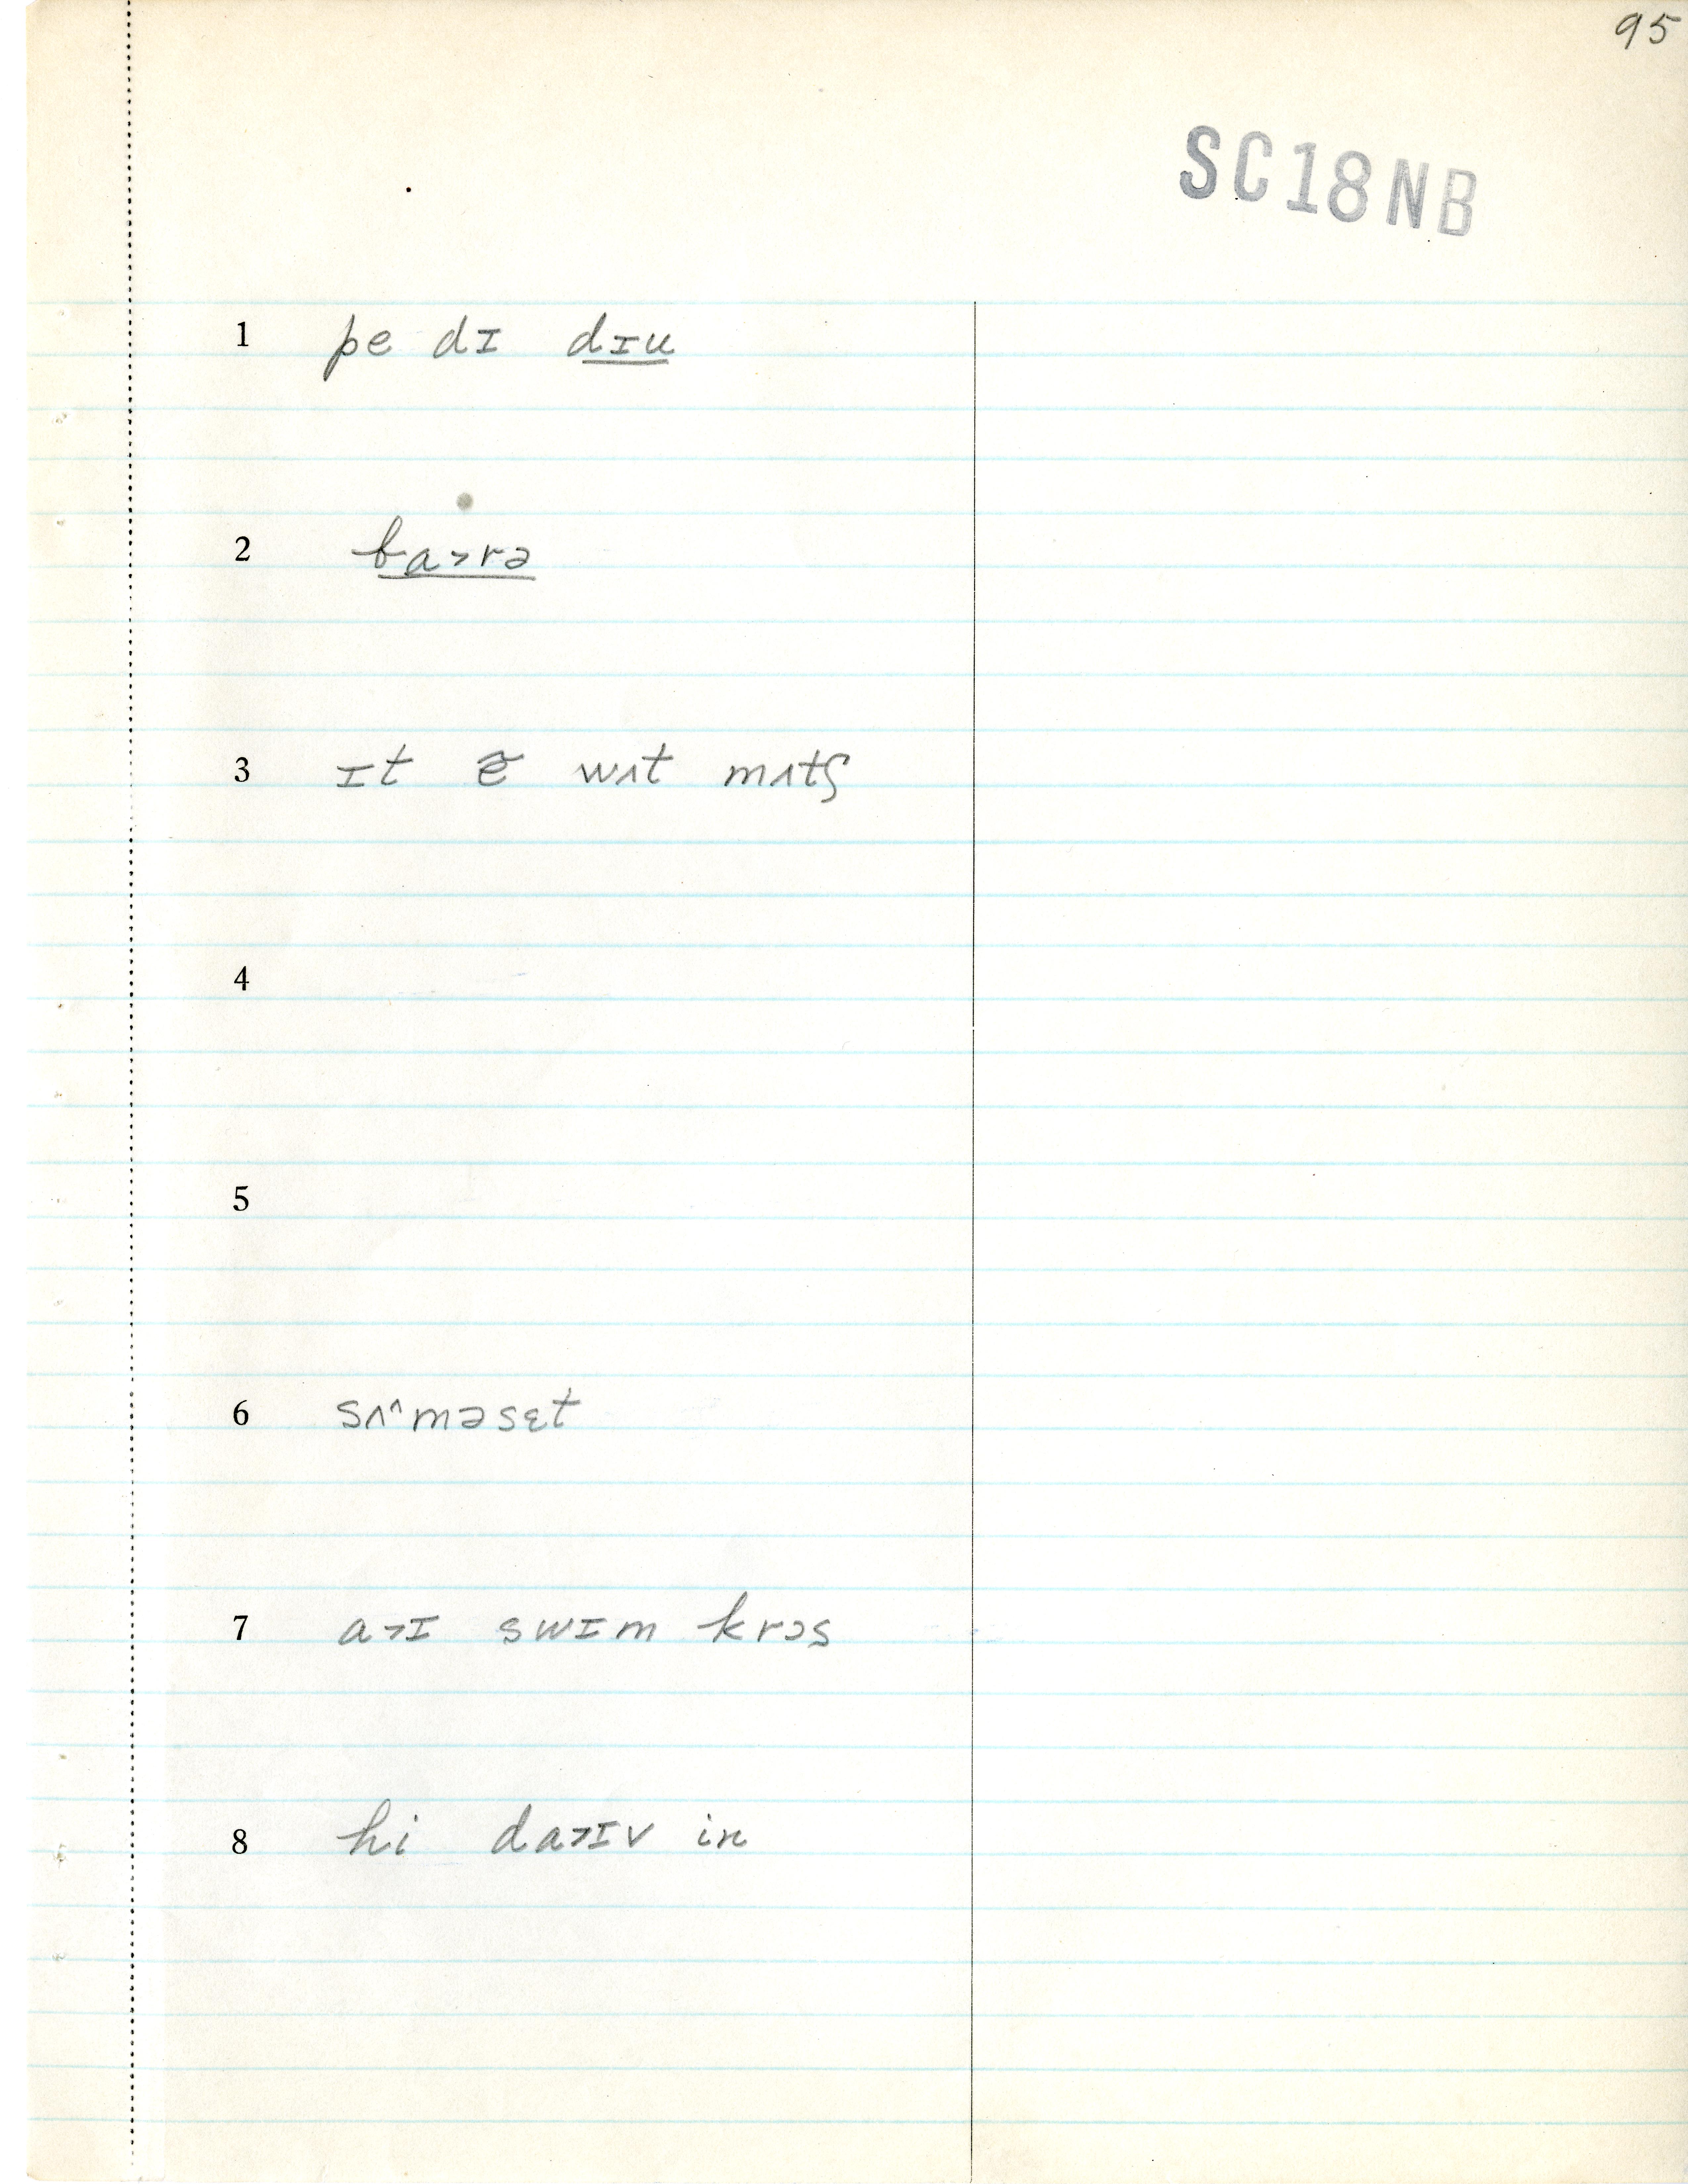 95
SC18NB
1 pe dɪ dɪu
2 ba˃rə
3 ɪt æ̃ wʌt mʌtʃ
4
5
6 sʌ^məsɛt
7 a˃ɪ swɪm krɔs
8 hi da˃ɪv in